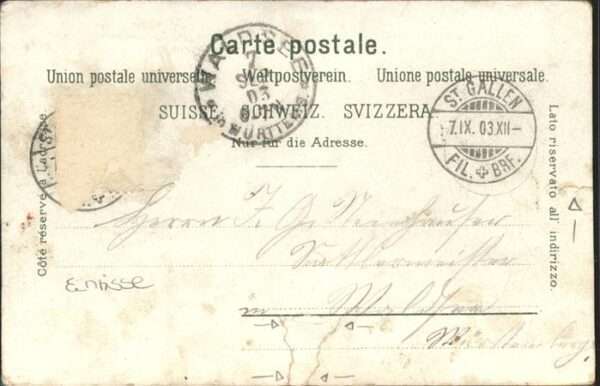 Carte postale.
Union postale universelle. Weltpostverein. Unione postale universale.
SUISSE. SCHWEIZ. SVIZZERA.
Nur für die Adresse.
WALDSEE
7
SEP
03
WÜRTTEMB
ST. GALLEN
7.IX. 03 XII-
FIL. BRF.
Côté réservé à l'adresse
Lato riservato all' indirizzo.
Herrn
Sattlermeister
in Waldsee
Württemberg